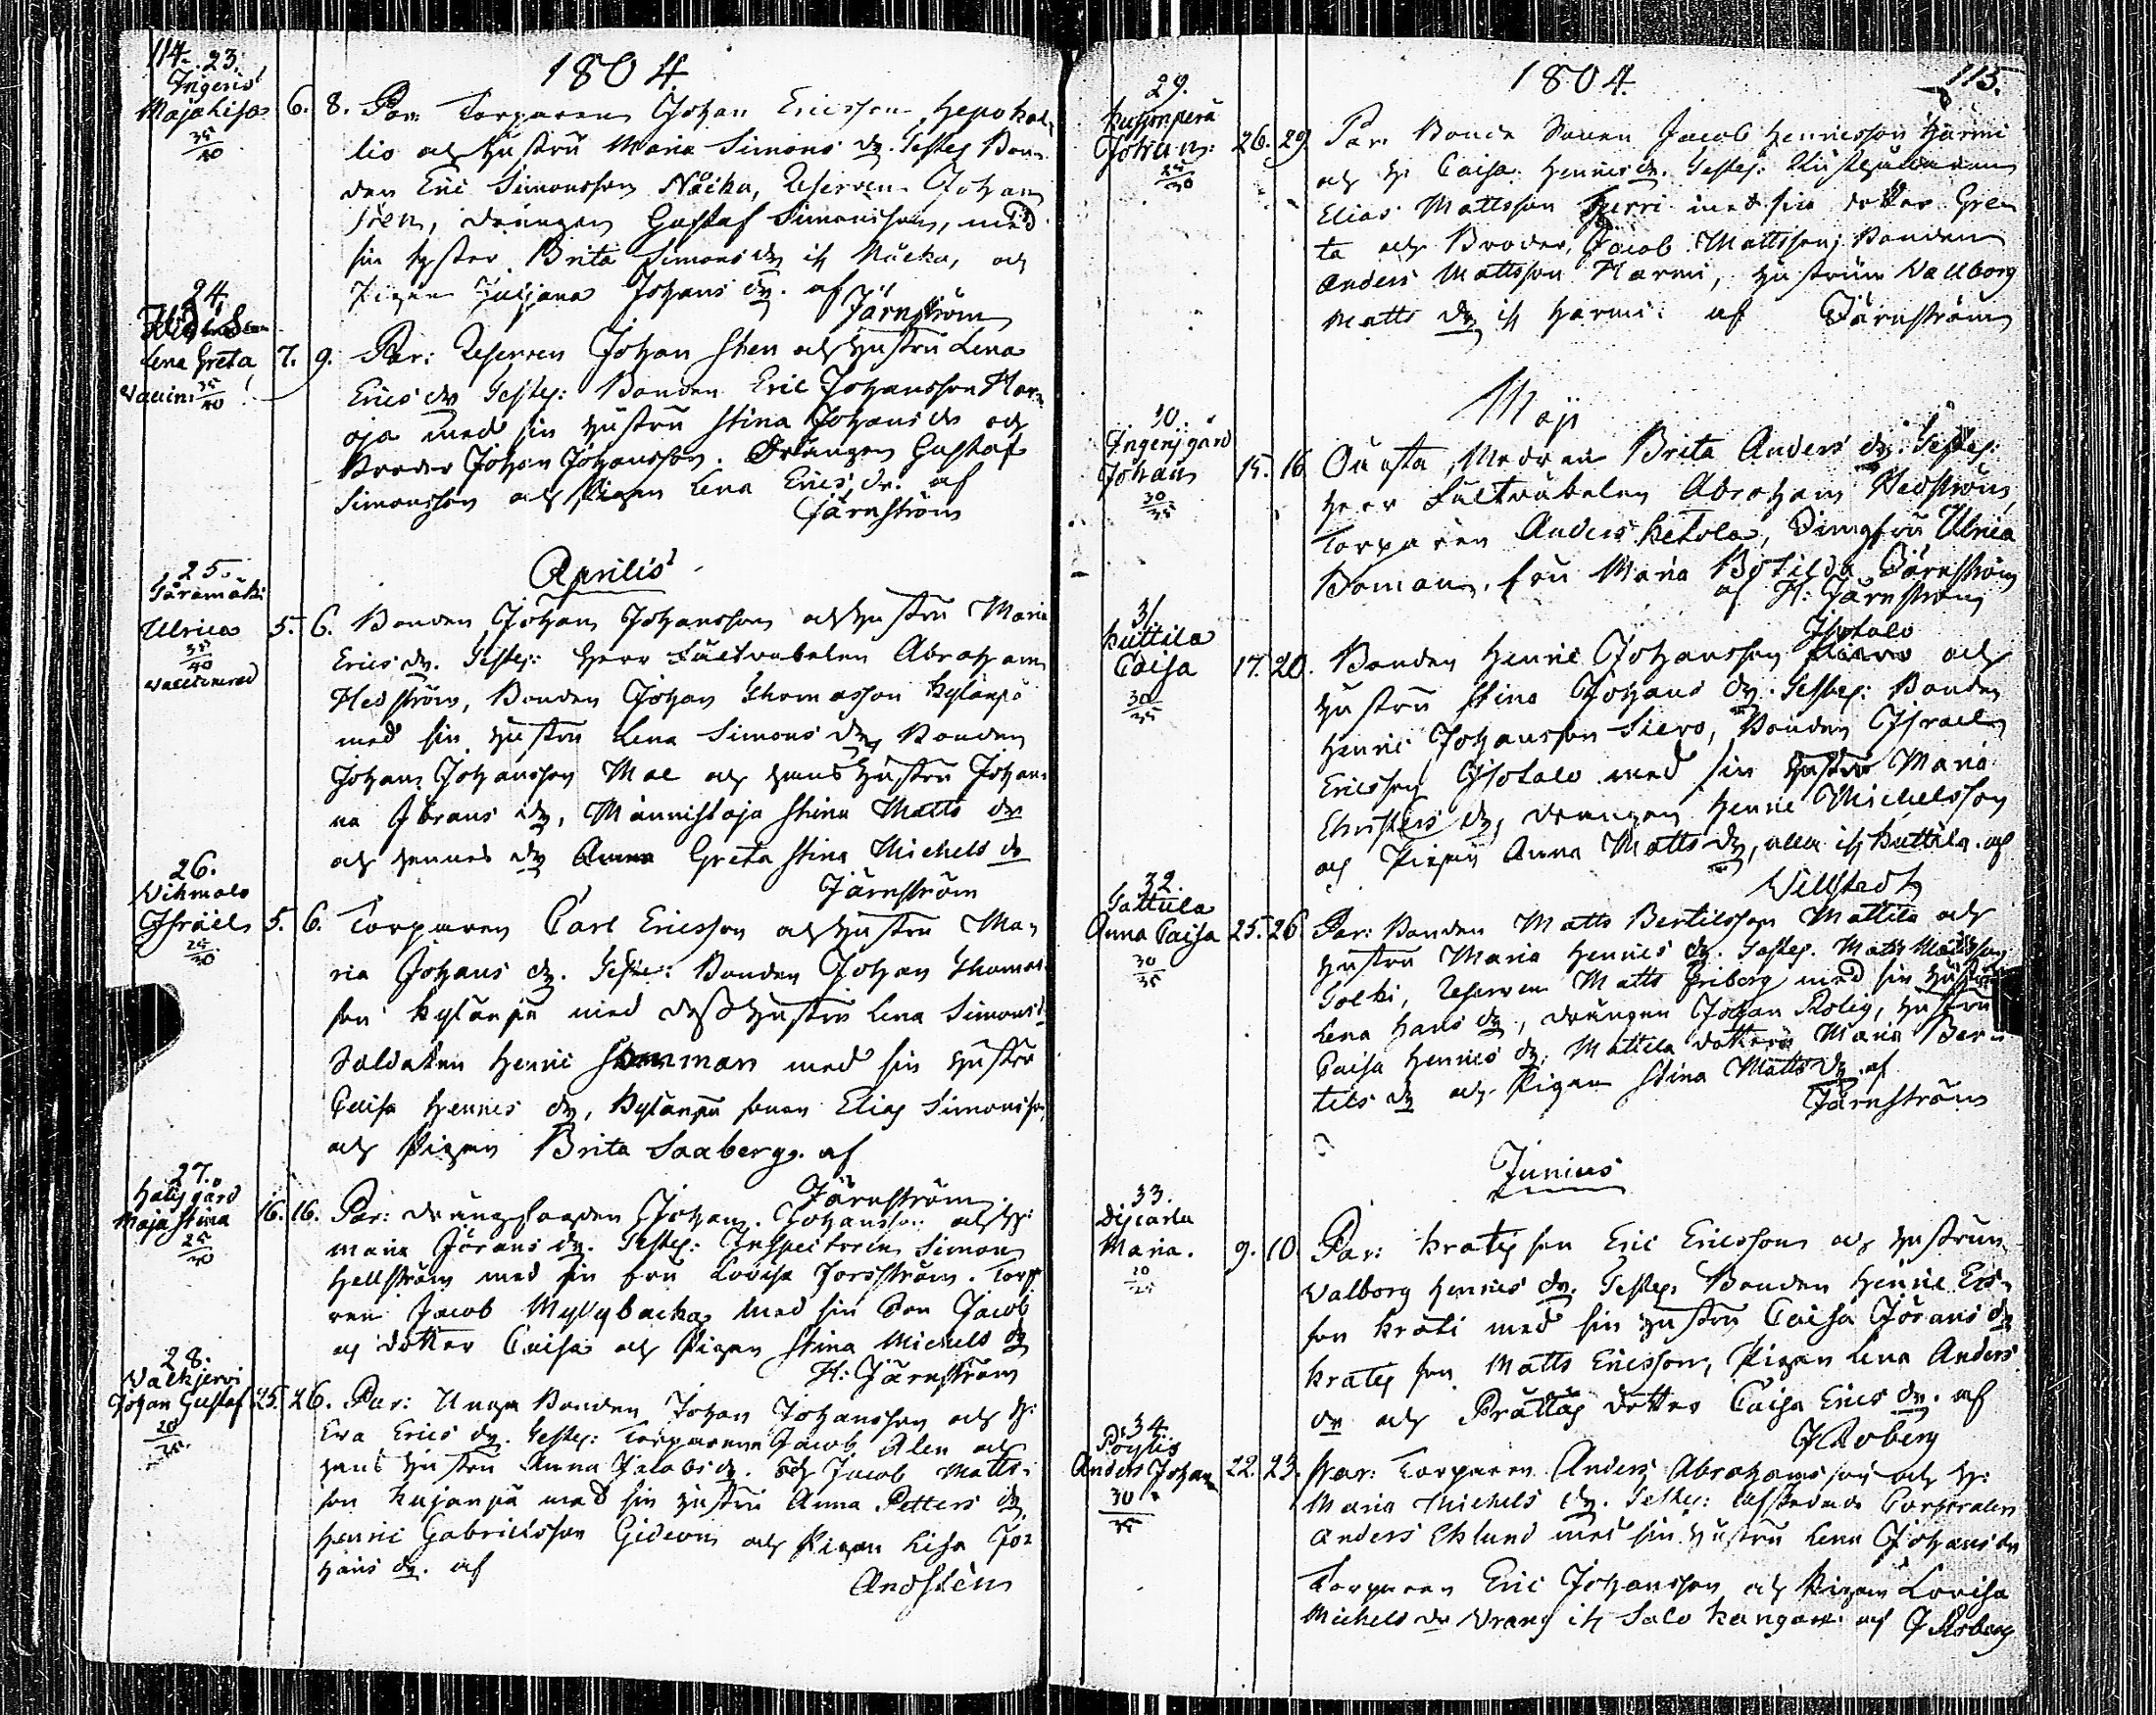 114.
1804
23.
Ingeris
Majalisa 6. 8. Par: Torparen Johan Ericsson Hepokal-
35/40
lio och Hustru Maria Simons dr. Testes Bon-
den Eric Simonsson Näcka, Reserven Johan
Sten, Drängen Gustaf Simonsson, med
sin syster Brita Simons dr is Näcka, och
Pigan Juljana Johans dr. af
Järnström
24.
Lena Greta 7. 9. Par: Reserven Johan Sten och Hustru Lena
Vaccin: 35/40
Erics dr Testes: Bonden Eric Johansson Har-
oja med sin Hustru Stina Johans dr och
Broder Johan Johansson. Drängen Gustaf
Simonsson och Pigan Lena Erics dr. af
Järnström
Aprilis
25.
Säremäki
Ulrica 5. 6. Bonden Johan Johansson och Hustru Maria
35/40
Vaccinerad
Erics dr. Testes: Herr Fältväbelen Abraham
Hedström, Bonden Johan Thomasson Kylänpä
med sin Hustru Lena Simons dr, Bonden
Johan Johansson Mal och hans Hustru Johan-
na Jörans dr, Männistoja Stina Matts dr
och hennes dr Greta Stina Michels dr
Järnström
26.
Vikmalo
Israel 5. 6. Torparen Carl Ericsson och Hustru Ma-
25/30
ria Johans dr. Testes: Bonden Johan Thomas-
son Kylänpä med dess Hustru Lena Simons dr
Soldaten Henric med sin Hustru
Caisa Henrics dr, Kylänpä sonen Elias Simonsson
och Pigan Brita Saaberg. af
Järnström
27.
Halisgård
Maja Stina 16. 16. Par: Johan Johansson och H:
25/30
Maria Jörans dr. Testes: Inspectoren Simon
Hellström med sin Fru Lovisa Forsström. Torpa
ren Jacob Myllybacka med sin Son Jacob
och dotter Caisa och Pigan Stina Michels dr
H: Järnström
28.
Valkjervi
Johan Gustaf 25. 26. Par: Unga Bonden Johan Johansson och H:
20/25
Eva Erics dr. Testes: Torparen Jacob Alen och
hans Hustru Anna Jacobs dr. och Jacob Matts-
son Kujanpä med sin Hustru Anna Petters dr
Henric Gabrielsson Gideon och Pigan Lisa Jo-
hans dr. af
Andstén
1804
115.
29.
Johan: 26. 29. Par: Bonde Sonen Jacob Henricsson Harmi
25/30
och H: Caisa Henrics dr. Testes:
Elias Mattsson med sin dotter Gre-
ta och Broder, Jacob Mattsson, Bonden
Anders Mattsson Harmi, Hustrun Vallborg
Matts dr is Harmi: af Järnström
Maji
30.
Ingensgård
Johan 15. 16. Oäcta, Modren Brita Anders dr: Testes:
30/35
Herr Fältväbelen Abraham Hedström,
Torparen Anders Ketola, Jungfru Ulrica
Boman, Fru Maria Botilda Järnström
af H: Järnström
31.
Kuttila
Isotalo
Caisa 17. 20. Bonden Henric Johansson och
30/35
Hustru Stina Johans dr. Testes: Bonden
Henric Johansson Siero, Bonden Israel
Ericsson Isotalo med sin Hustru Maria
Christers dr, Drängen Henric Michelsson
och Pigan Anna Matts dr, alla is Kuttila. af
Villstedt
32.
Sattula
Anna Caisa 25. 26. Par: Bonden Matts Bertilsson Mattila och
30/35
Hustru Maria Henrics dr. Testes. Matts Mattsson
Solki, Reserven Matts Friberg med sin Hustru
Lena Hans dr, Drängen Johan Rolig, Hustru
Caisa Henrics dr, Mattila dottern Maria Ber-
tils dr och Pigan Stina Matts dr. af
Järnström
Junius
33.
Discarla
Maria. 9. 10. Par: Kratis son Eric Ericsson och Hustrun
20/25
Valborg Henrics dr. Testes: Bonden Henric Eric-
son Krati med sin Hustru Caisa Jörans dr
Kratis son Matts Ericsson, Pigan Lena Anders
dr och Prättäs dotter Caisa Erics dr. af
J Roberg
34.
Pöylis
Anders Johan 22. 23. Par: Torparen Anders Abrahamsson och H:
30/35
Maria Michels dr. Testes: Afskedade Corporalen
Anders Eklund med sin Hustru Lena Johans dr
Torparen Eric Johansson och Pigan Lovisa
Michels dr is Salo kangare. af J Roberg